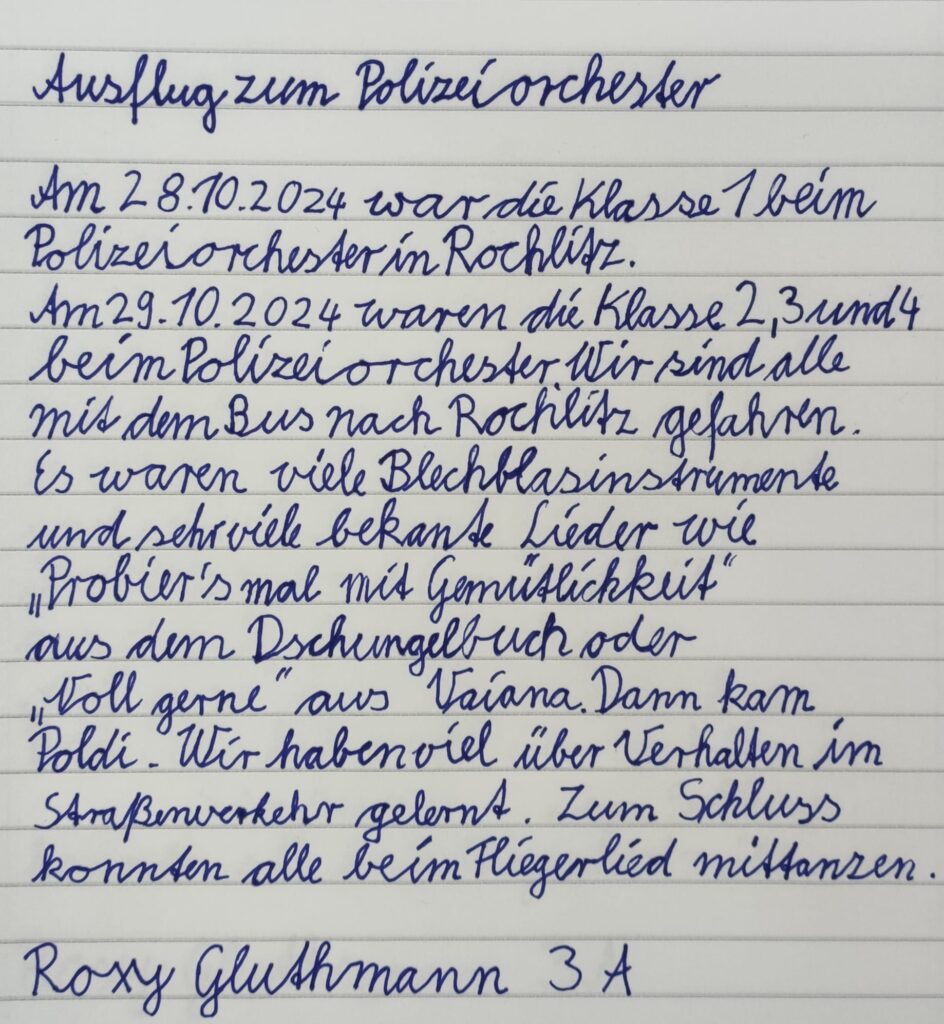 Ausflug zum Polizeiorchester
Am 28.10.2024 war die Klasse 1 beim
Polizeiorchester in Rochlitz.
Am 29.10.2024 waren die Klasse 2, 3 und 4
beim Polizeiorchester. Wir sind alle
mit dem Bus nach Rochlitz gefahren.
Es waren viele Blechblasinstrumente
und sehr viele bekante Lieder wie
„Probier's mal mit Gemütlichkeit“
aus dem Dschungelbuch oder
„Voll gerne“ aus Vaiana. Dann kam
Poldi. Wir haben viel über Verhalten im
Straßenverkehr gelernt. Zum Schluss
konnten alle beim Fliegerlied mittanzen.
Roxy Gluthmann 3 A